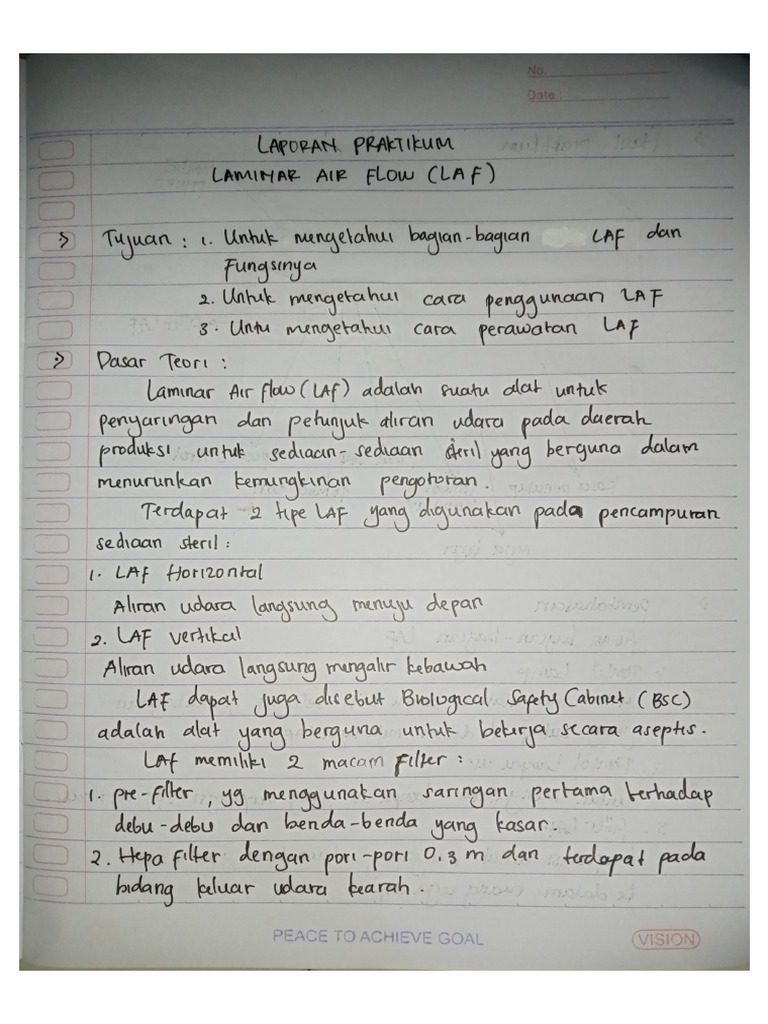 No.
Date :
LAPORAN PRAKTIKUM
LAMINAR AIR FLOW (LAF)
Tujuan : 1. Untuk mengetahui bagian-bagian LAF dan
Fungsinya
2. Untuk mengetahui cara penggunaan LAF
3. Untu mengetahui cara perawatan LAF
Dasar Teori :
Laminar Air flow (LAF) adalah suatu alat untuk
penyaringan dan petunjuk aliran udara pada daerah
produksi untuk sediaan-sediaan steril yang berguna dalam
menurunkan kemungkinan pengotoran.
Terdapat 2 tipe LAF yang digunakan pada pencampuran
sediaan steril :
1. LAF Horizontal
Aliran udara langsung menuju depan
2. LAF vertikal
Aliran udara langsung mengalir kebawah
LAF dapat juga disebut Biological Safety Cabinet (BSC)
adalah alat yang berguna untuk bekerja secara aseptis.
LAF memiliki 2 macam Filter :
1. pre-filter, yg menggunakan saringan pertama terhadap
debu-debu dan benda-benda yang kasar.
2. Hepa Filter dengan pori-pori 0,3 m dan terdapat pada
bidang keluar udara kearah.
PEACE TO ACHIEVE GOAL
VISION